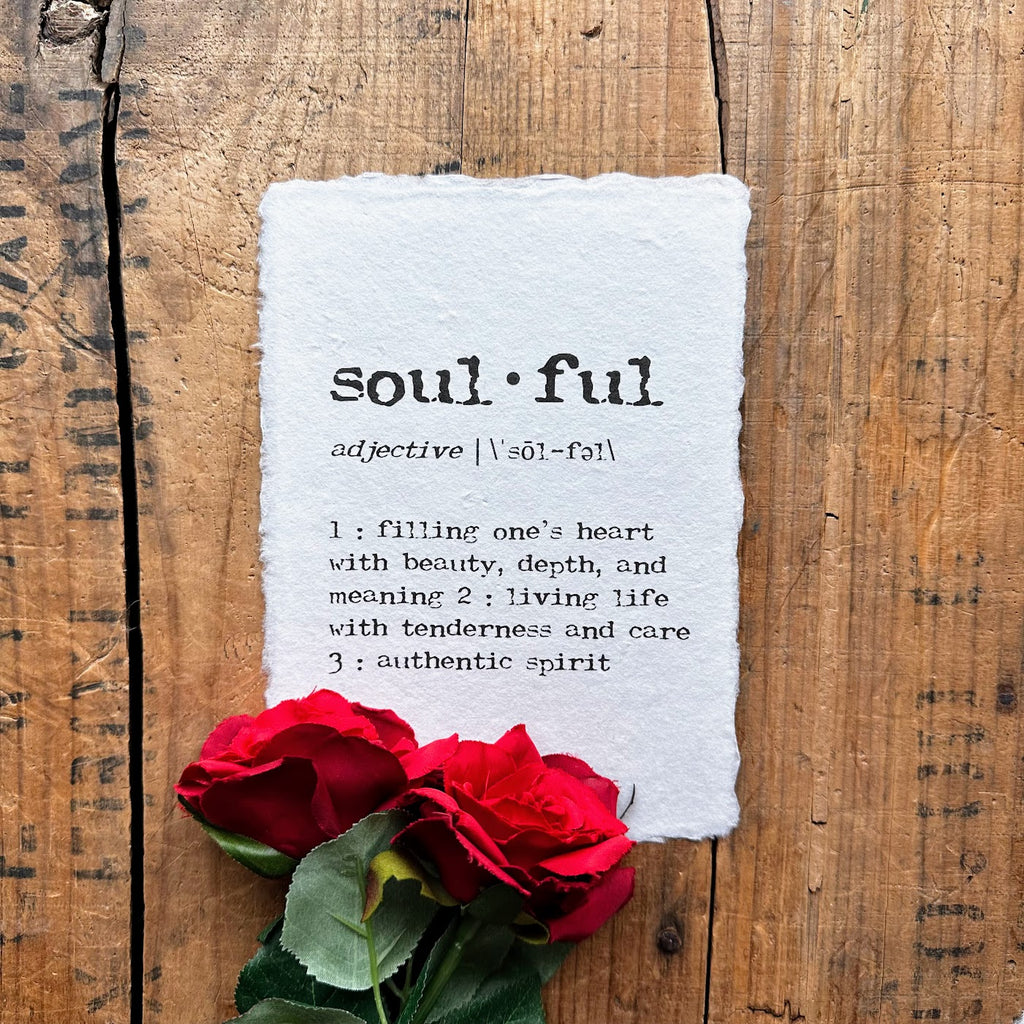 soul·ful
adjective | \ˈsōl-fəl\
1 : filling one's heart
with beauty, depth, and
meaning 2 : living life
with tenderness and care
3 : authentic spirit